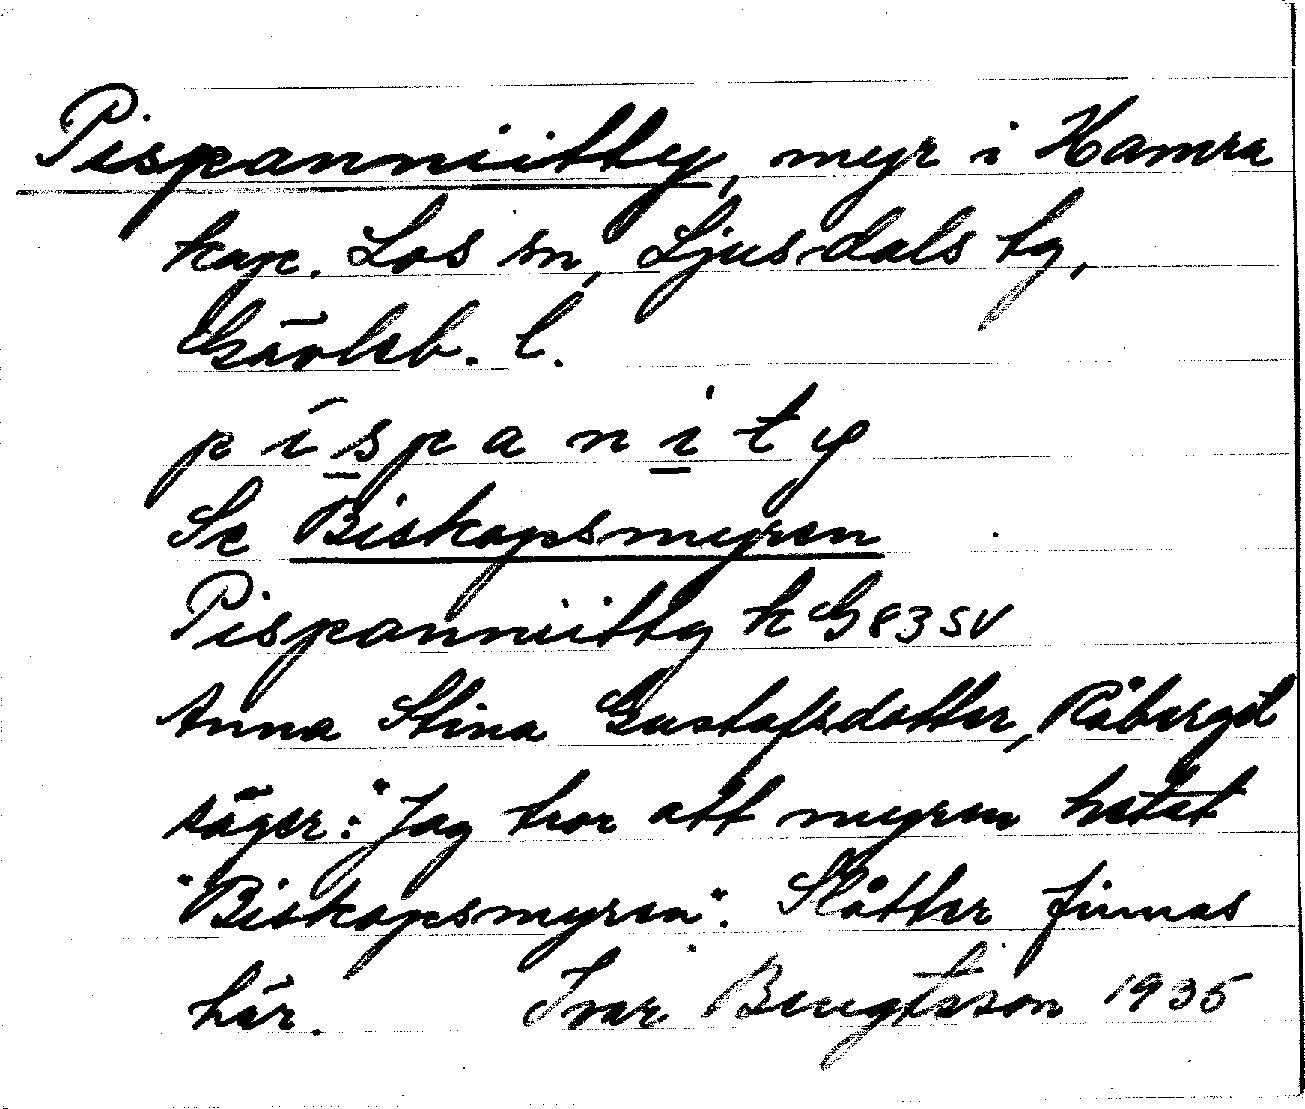 Pispanniitty, myr i Hamra
kap. Los sn, Ljusdals tg,
Gävleb. l.
píspanity
Se Biskopsmyren
Pispanniitty k G83SV
Anna Stina Gustafsdotter, Råberget
säger: "Jag tror att myren hetat
"Biskopsmyren". Slåtter finnas
här. Ivar Bengtsson 1935